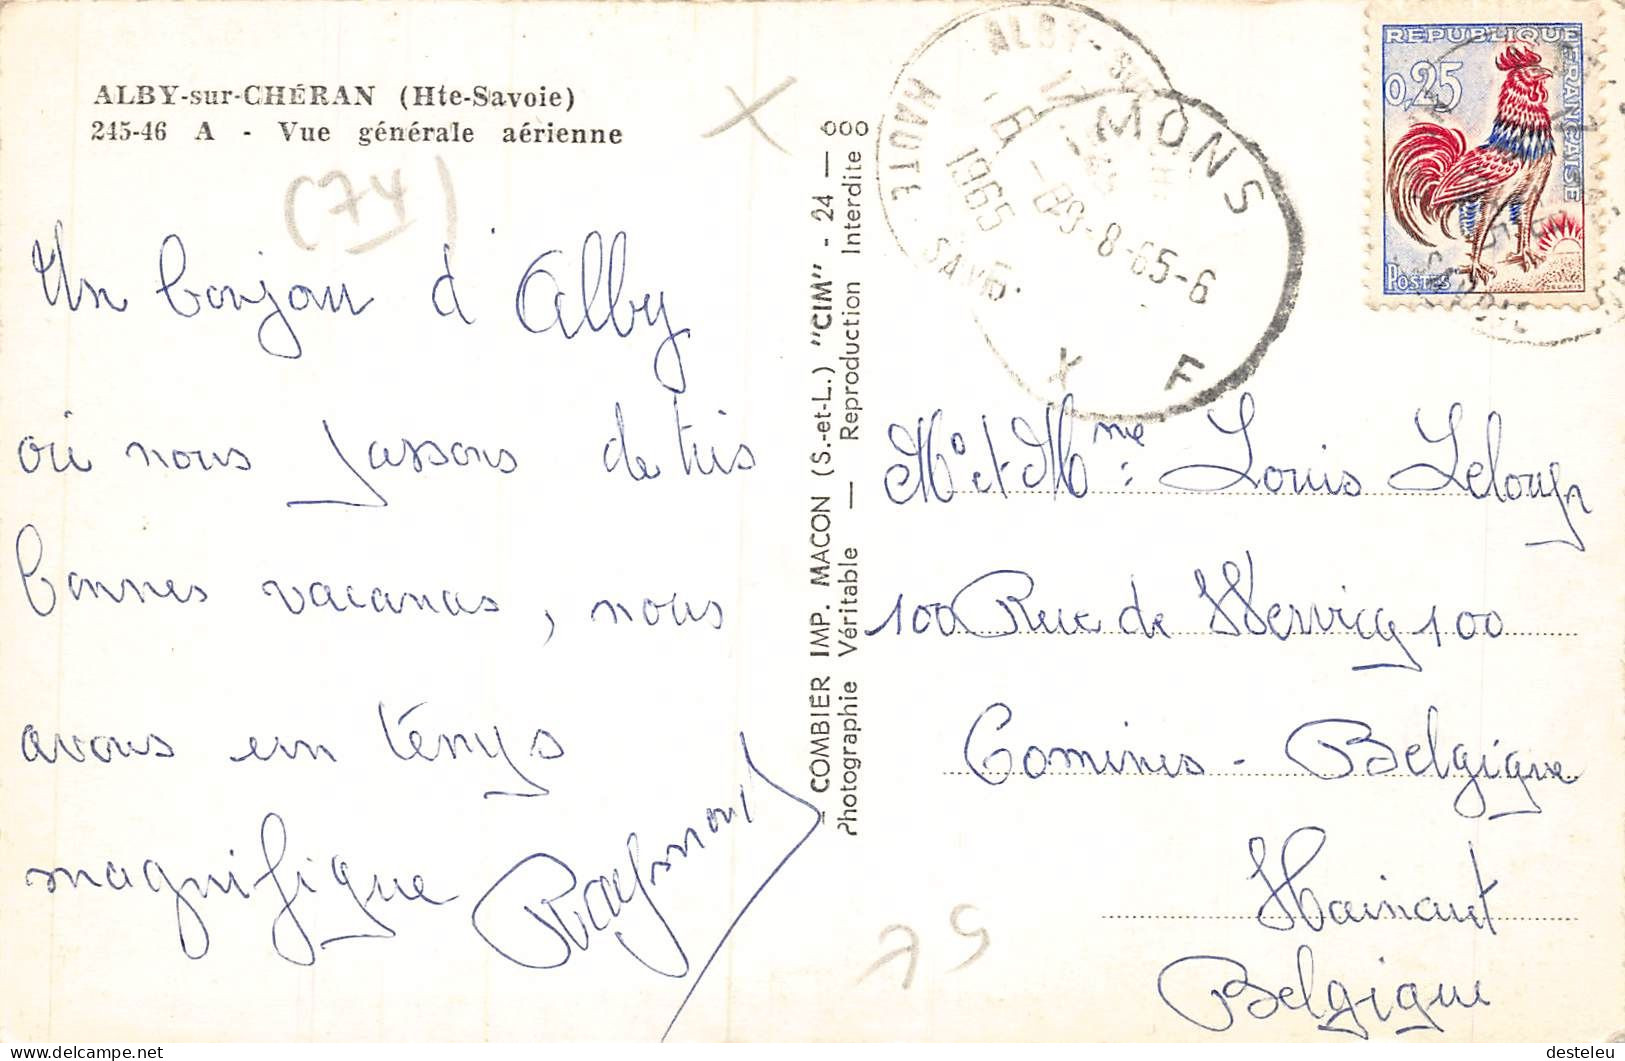 ALBY-sur-CHÉRAN (Hte-Savoie)
245-46 A - Vue générale aérienne
(74)
Un bonjour d'Alby
où nous passons de très
bonnes vacances, nous
avons un temps
magnifique Raymond
COMBIER IMP. MACON (S.-et-L.) "CIM" - 24 - 000
Photographie Véritable — Reproduction Interdite
ALBY-SUR
HAUTE SAVOIE
1965
MONS
9-8-65-6
X F
REPUBLIQUE FRANÇAISE
0,25
POSTES
DECARIS
Mr et Mme: Louis Leloup
100 Rue de Wervicq 100
Comines - Belgique
Hainaut
Belgique
75
delcampe.net
desteleu